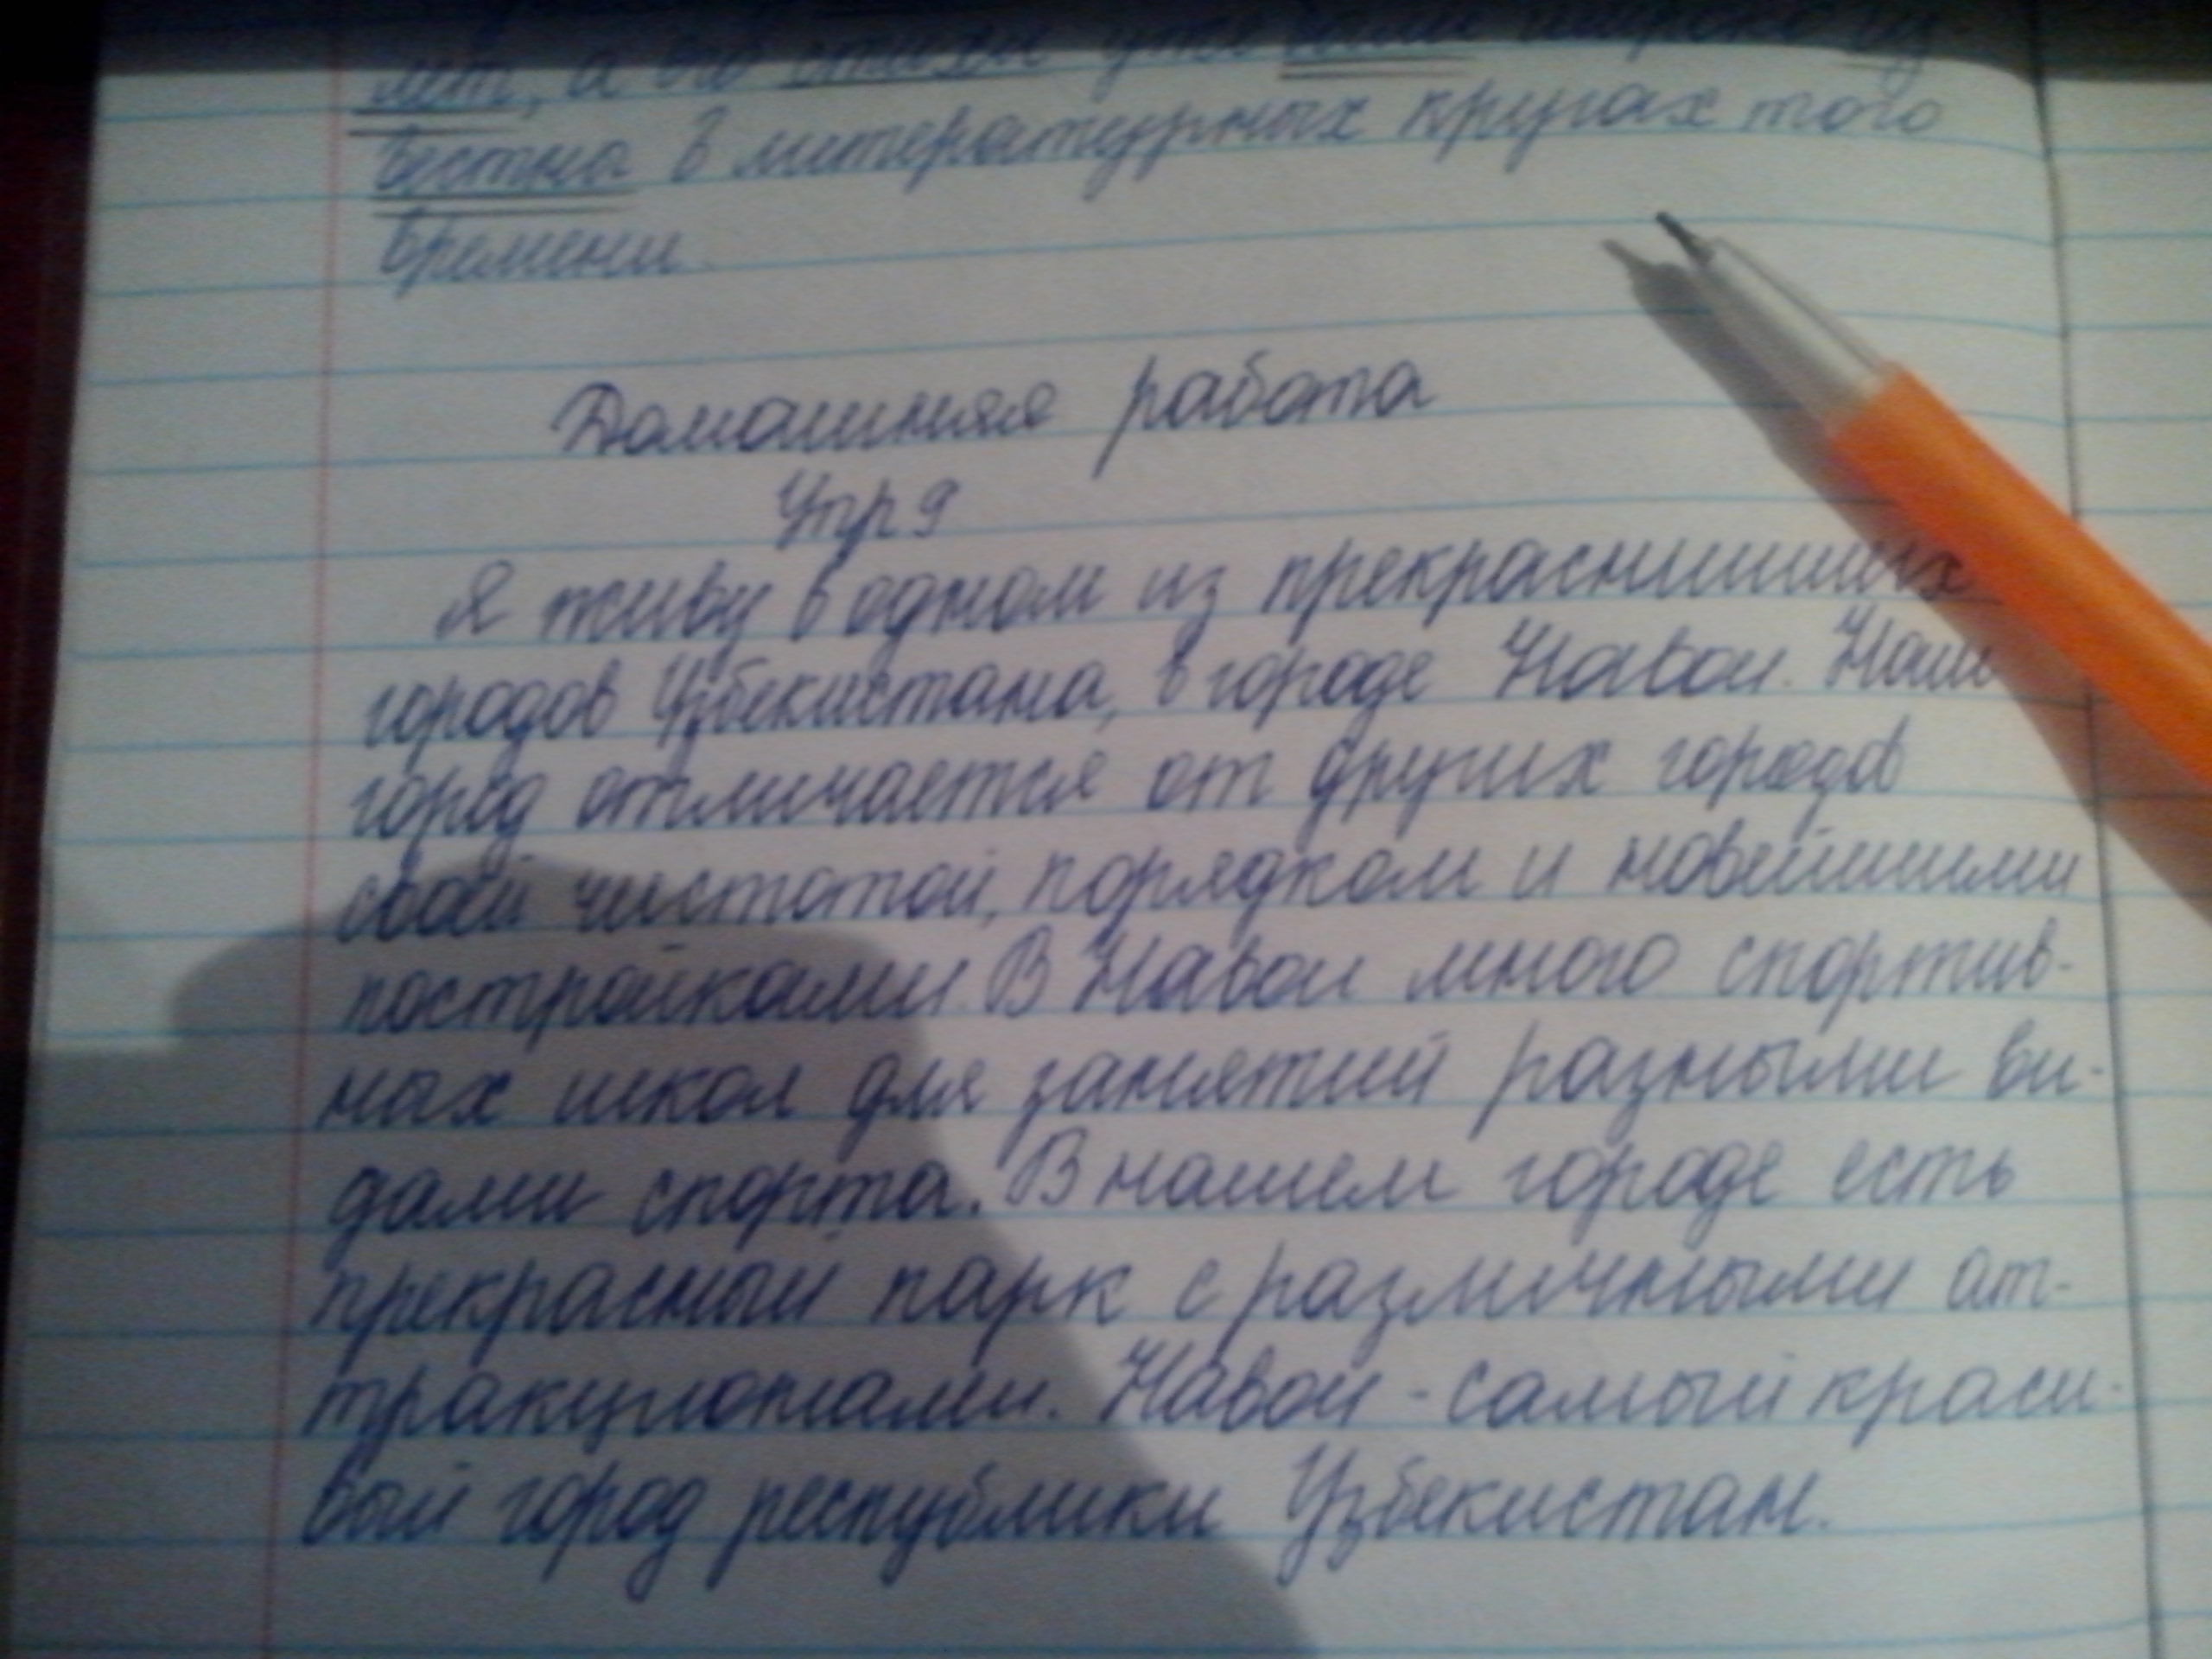 лет, а его стихи уже были широко из
вестна в литературных кругах того
времени.
Домашняя работа
Упр 9
Я живу в одном из прекраснишших
городов Узбекистана, в городе Навои. Наш
город отличается от других городов
своей чистотой, порядком и новейшими
постройками. В Навои много спортив-
ных школ для занятий разными ви-
дами спорта. В нашем городе есть
прекрасный парк с различными ат-
тракционами. Навои - самый краси-
вый город республики Узбекистан.